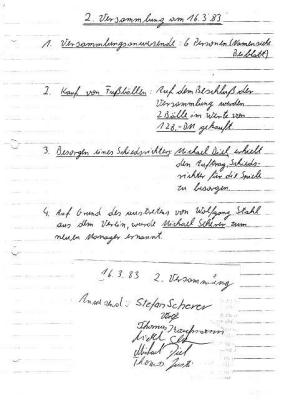 2. Versammlung am 16.3.83
1. Versammlungsanwesende: 6 Personen (Namen siehe
Beiblatt)
2. Kauf von Fußbällen: Auf dem Beschluß der
Versammlung werden
2 Bälle im Werte von
128,-DM gekauft
3. Besorgen eines Schiedsrichters: Michael Diel erhielt
den Auftrag, Schieds-
richter für die Spiele
zu besorgen.
4. Auf Grund des Austretens von Wolfgang Stahl
aus dem Verein, wurde Michael Scherer zum
neuen Manager ernannt.
16.3.83 2. Versammlung
Anwesend: Stefan Scherer
Thomas
Michael Diel
Thomas